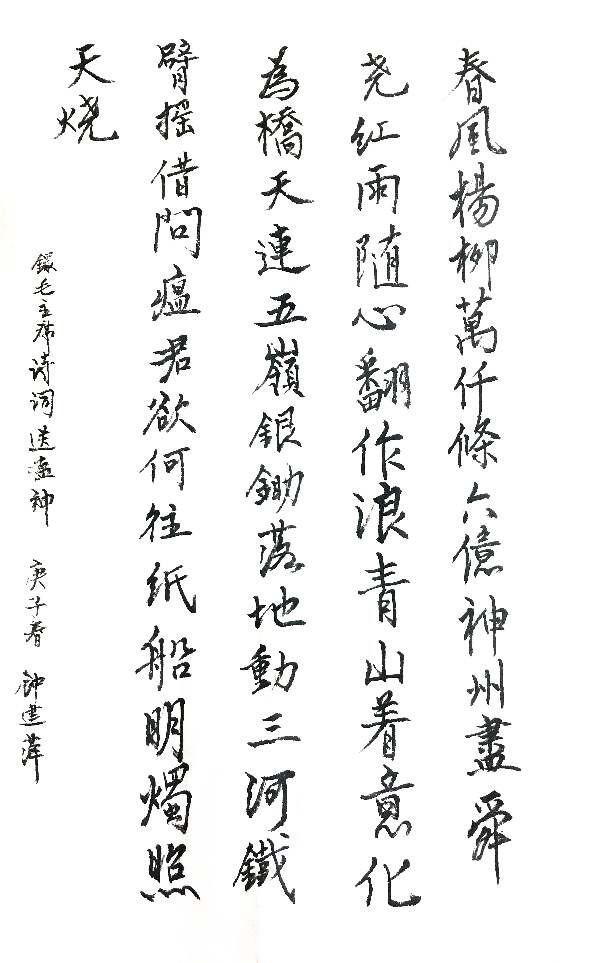 春風楊柳萬仟條六億神州盡舜
尧紅雨隨心翻作浪青山着意化
為橋天連五嶺銀鋤落地動三河鐵
臂摇借問瘟君欲何往纸船明燭照
天烧
錄毛主席诗词送瘟神 庚子春 钟建萍